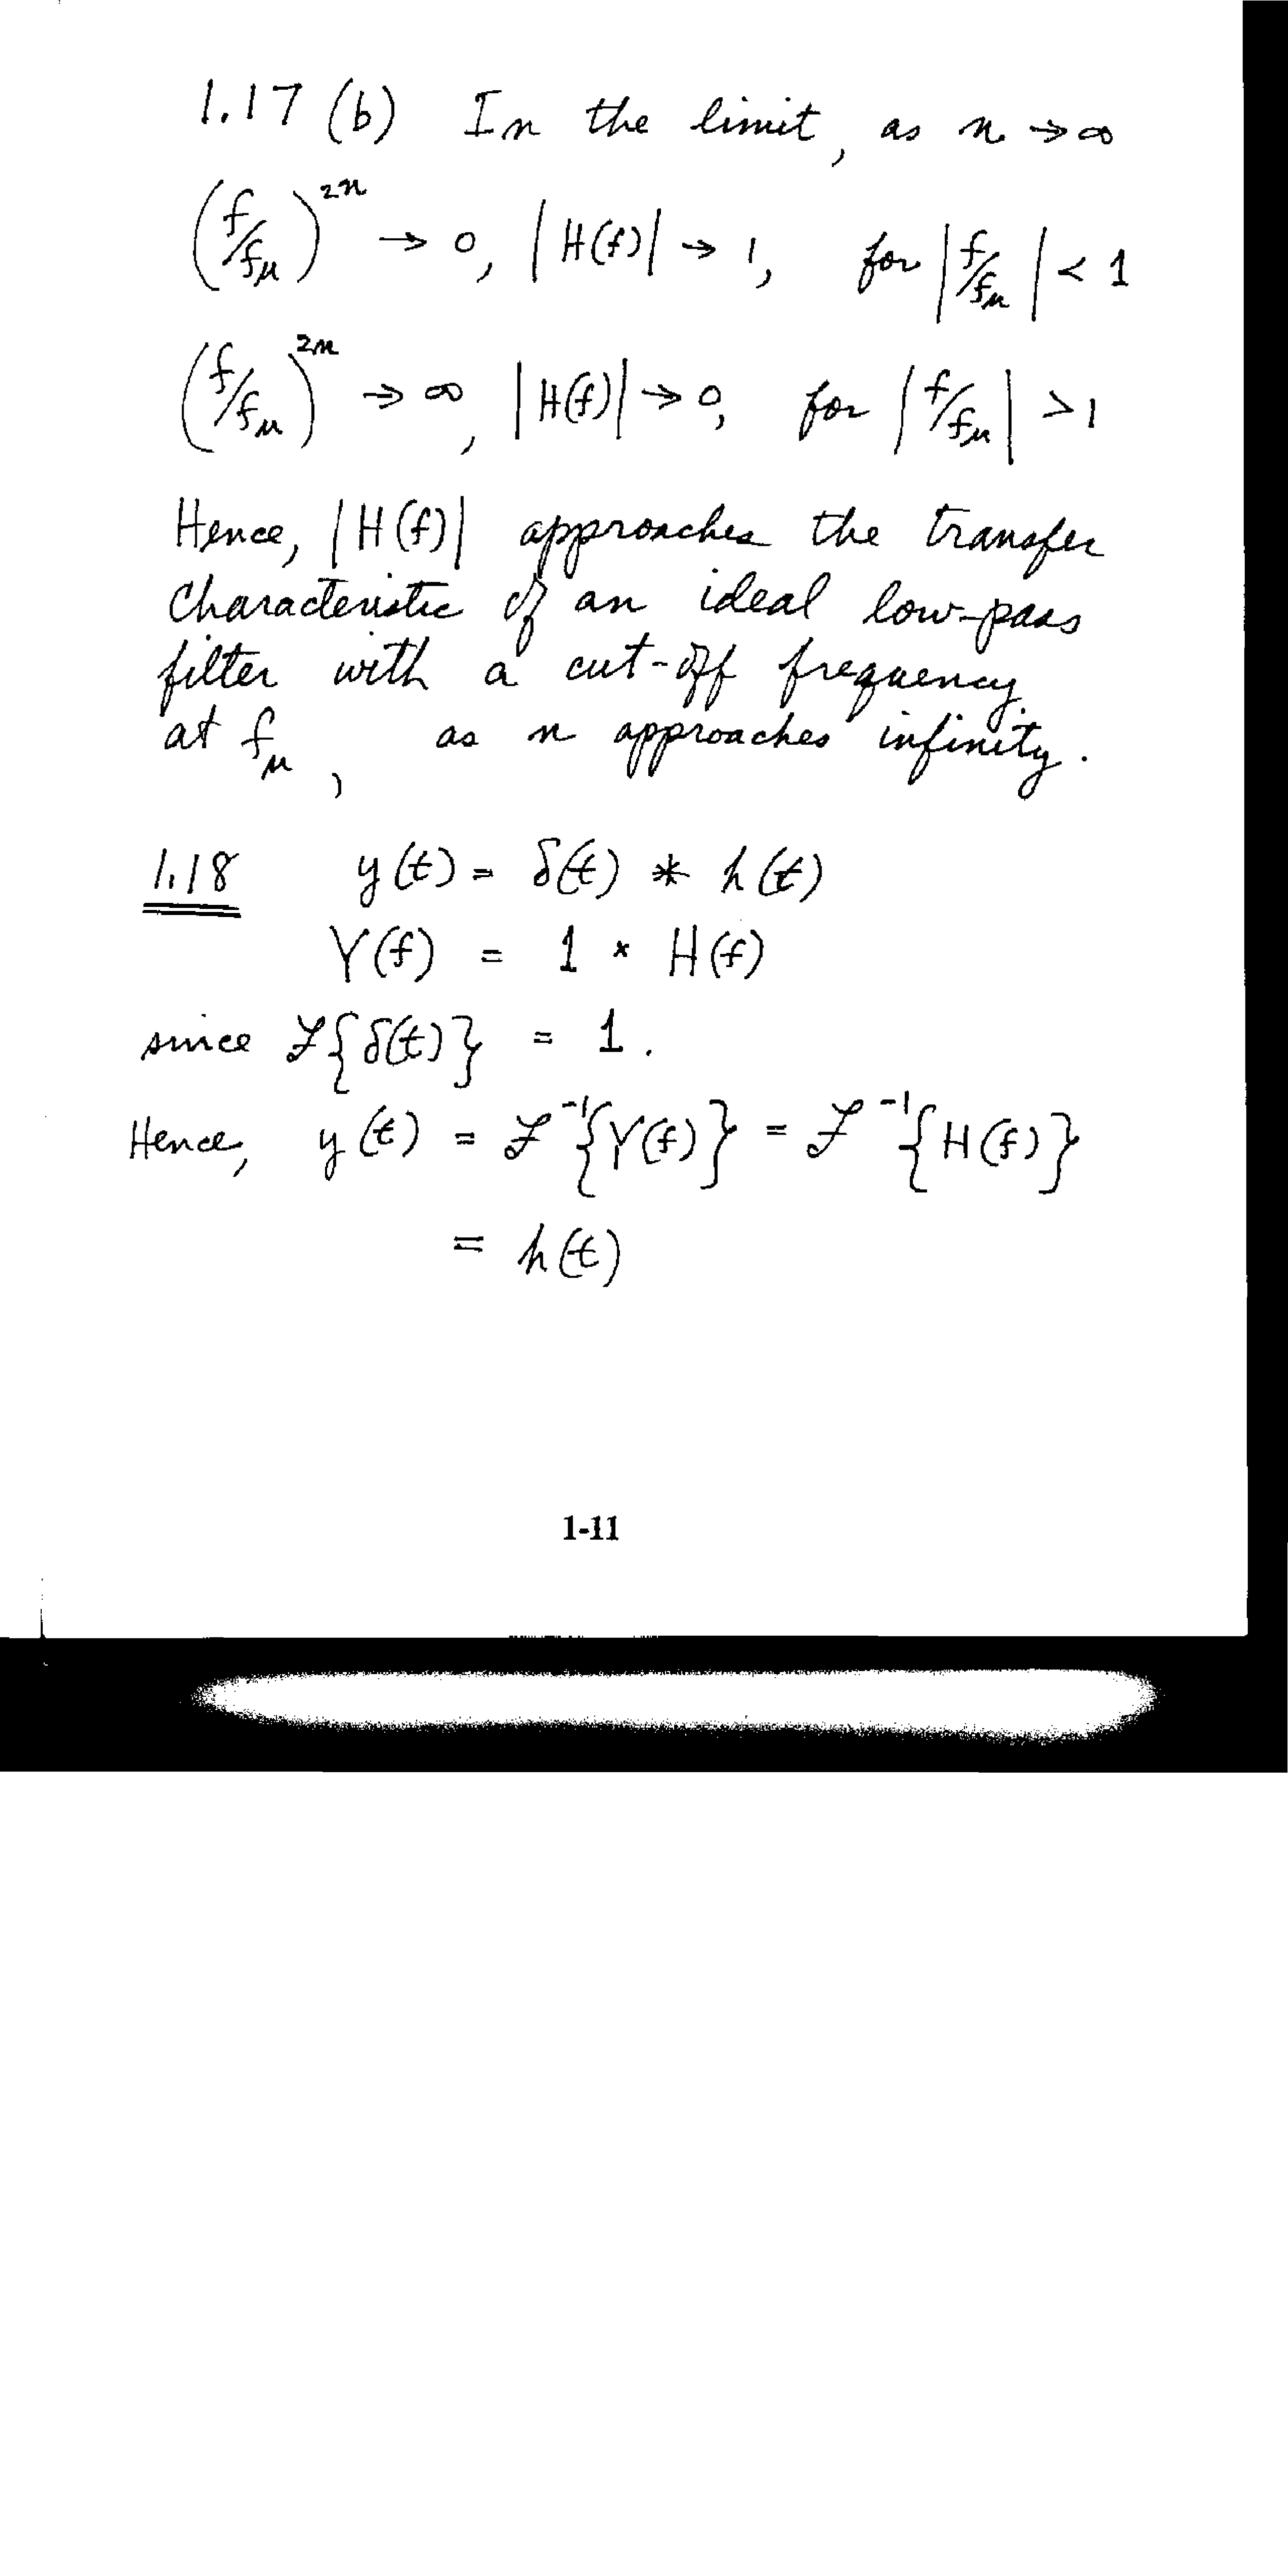 1.17 (b) In the limit, as n → ∞
(f/fu)^2n → 0, |H(f)| → 1, for |f/fu| < 1
(f/fu)^2n → ∞, |H(f)| → 0, for |f/fu| > 1
Hence, |H(f)| approaches the transfer
characteristic of an ideal low-pass
filter with a cut-off frequency
at fu, as n approaches infinity.
1.18 y(t) = δ(t) * h(t)
Y(f) = 1 × H(f)
since ℱ{δ(t)} = 1.
Hence, y(t) = ℱ^-1{Y(f)} = ℱ^-1{H(f)}
= h(t)
1-11